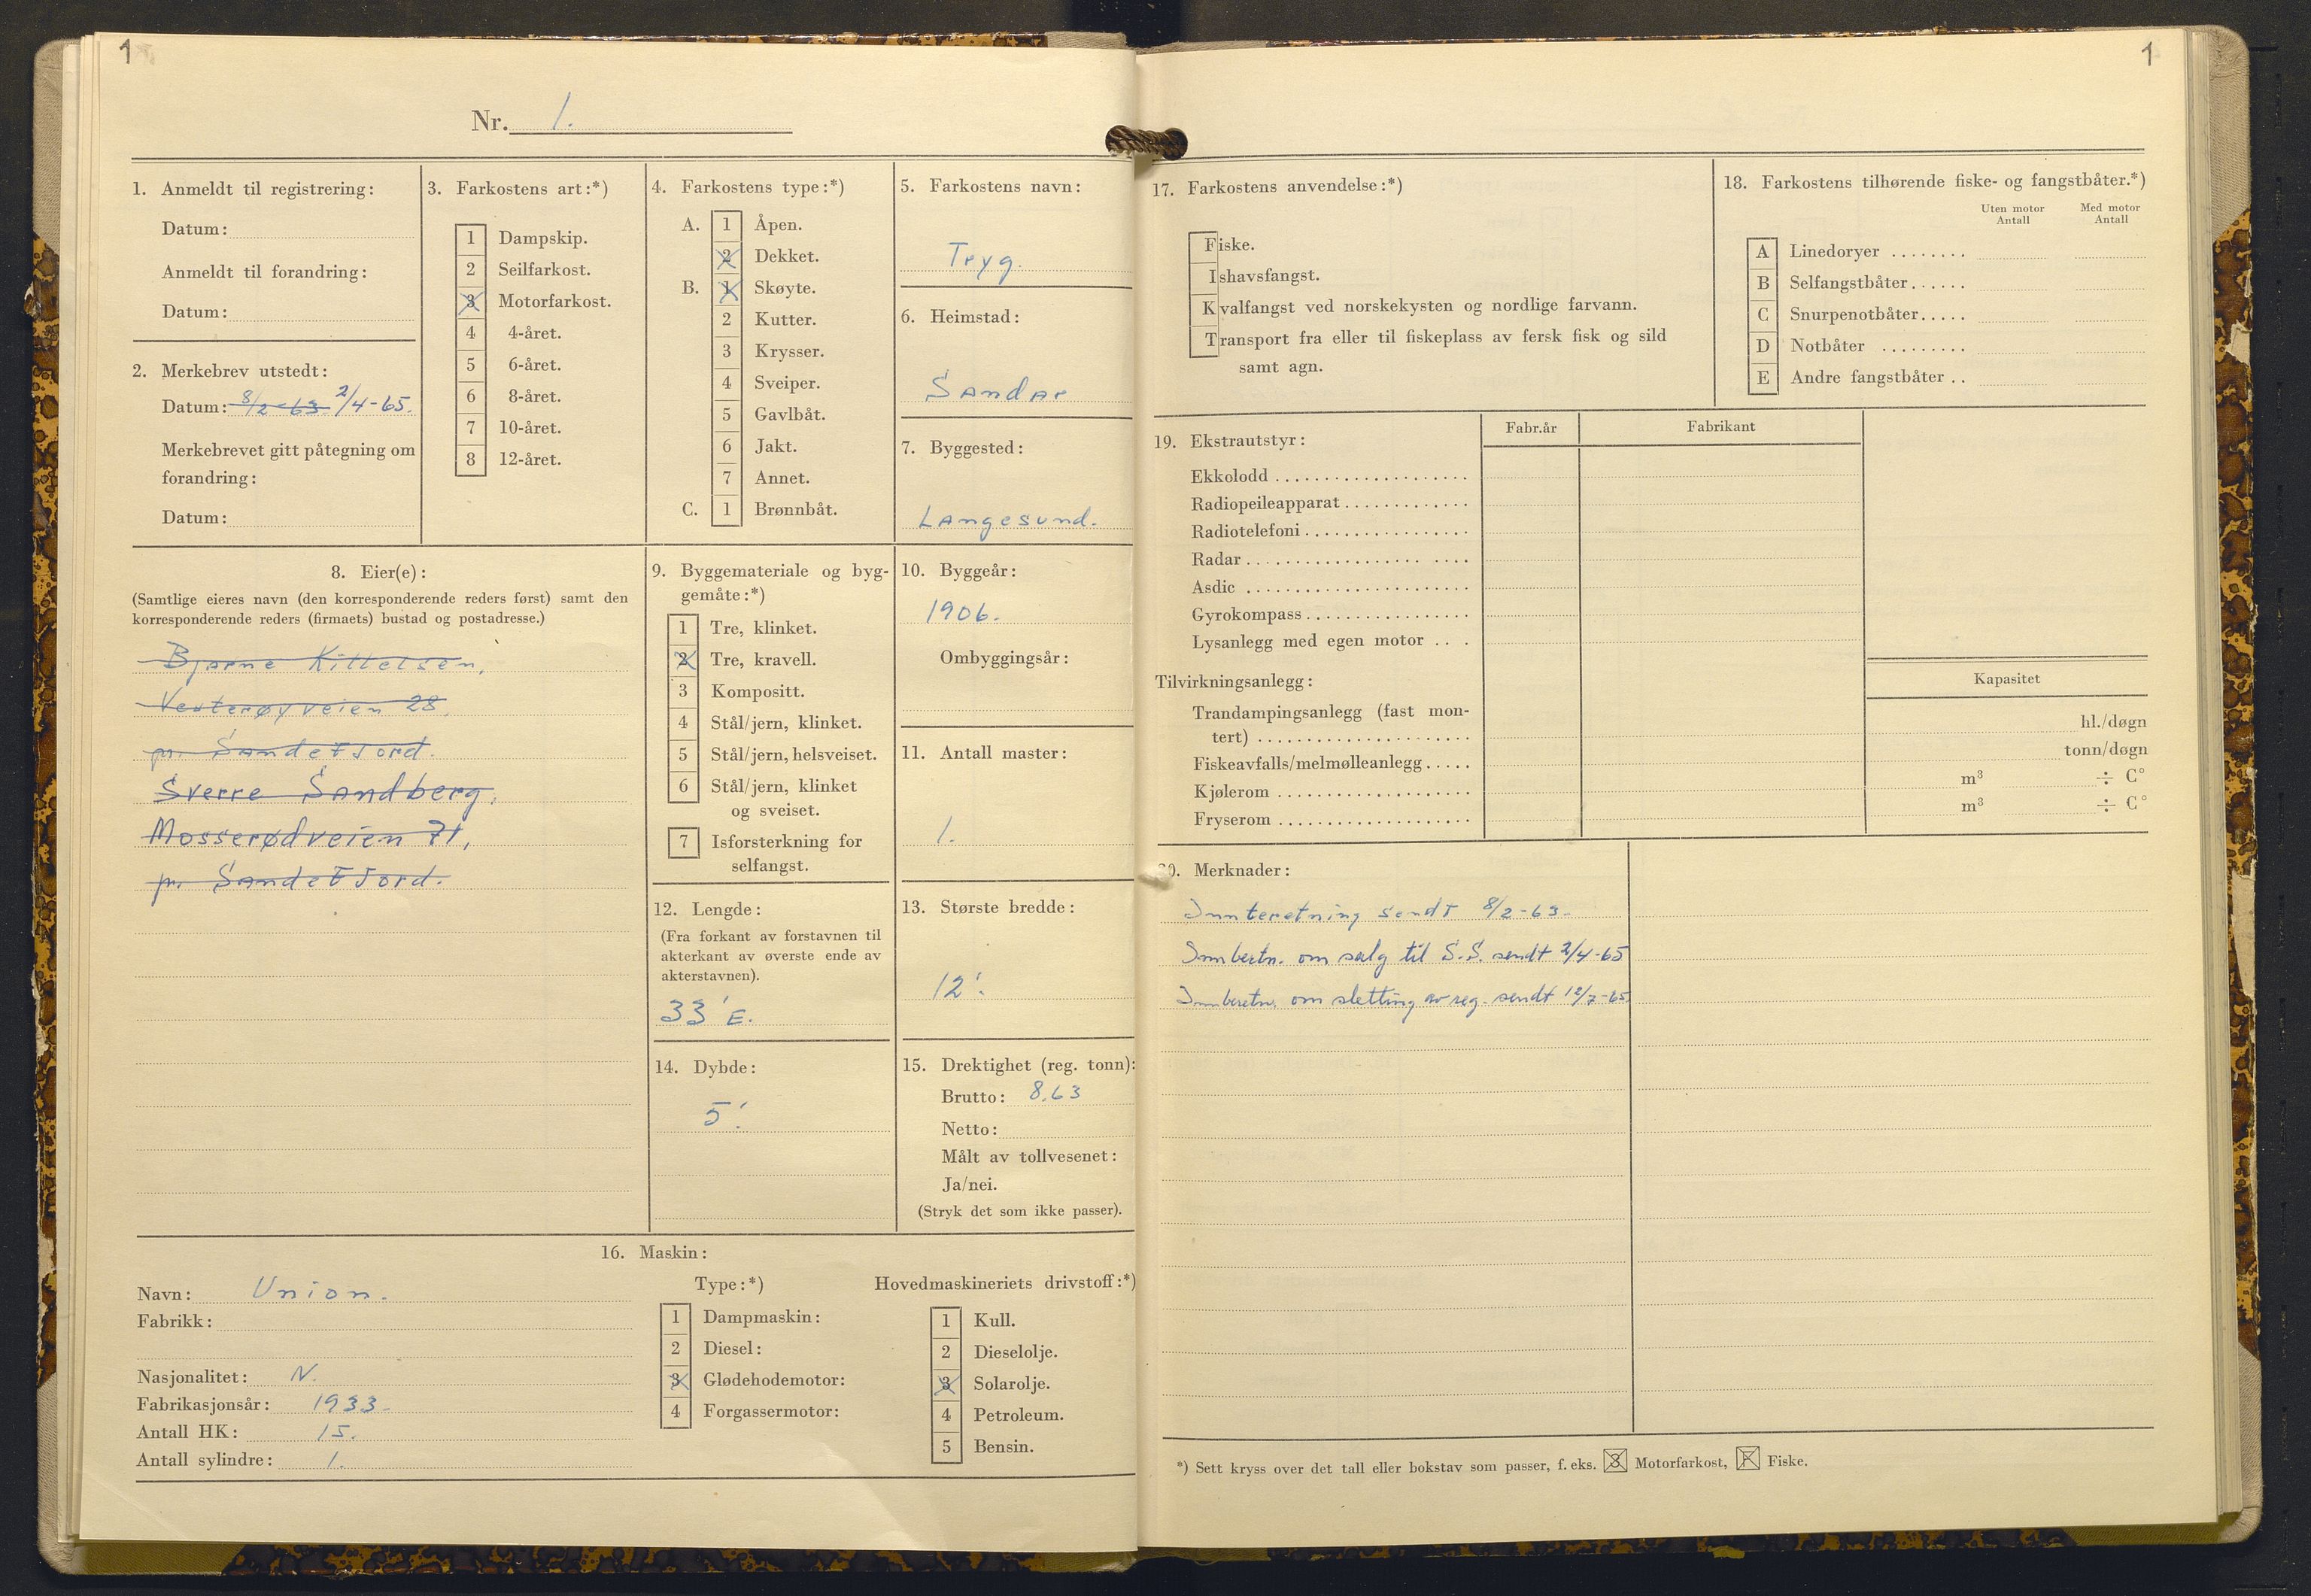 1
Nr. 1.
1. Anmeldt til registrering:
Datum:
Anmeldt til forandring:
Datum:
2. Merkebrev utstedt:
Datum: 8/2-63. 2/4-65.
Merkebrevet gitt påtegning om
forandring:
Datum:
3. Farkostens art:*)
1 Dampskip.
2 Seilfarkost.
3 Motorfarkost.
4 4-året.
5 6-året.
6 8-året.
7 10-året.
8 12-året.
4. Farkostens type:*)
A. 1 Åpen.
2 Dekket.
B. 1 Skøyte.
2 Kutter.
3 Krysser.
4 Sveiper.
5 Gavlbåt.
6 Jakt.
7 Annet.
C. 1 Brønnbåt.
5. Farkostens navn:
Tryg.
6. Heimstad:
Sandar
7. Byggested:
Langesund.
8. Eier(e):
(Samtlige eieres navn (den korresponderende reders først) samt den
korresponderende reders (firmaets) bustad og postadresse.)
Bjarne Kittelsen,
Vesterøyveien 28,
pr. Sandefjord.
Sverre Sandberg,
Mosserødveien 71,
pr. Sandefjord.
9. Byggemateriale og byg-
gemåte:*)
1 Tre, klinket.
2 Tre, kravell.
3 Kompositt.
4 Stål/jern, klinket.
5 Stål/jern, helsveiset.
6 Stål/jern, klinket
og sveiset.
7 Isforsterkning for
selfangst.
10. Byggeår:
1906.
Ombyggingsår:
11. Antall master:
1.
12. Lengde:
(Fra forkant av forstavnen til
akterkant av øverste ende av
akterstavnen).
33' E.
13. Største bredde:
12'.
14. Dybde:
5'.
15. Drektighet (reg. tonn):
Brutto: 8.63
Netto:
Målt av tollvesenet:
Ja/nei.
(Stryk det som ikke passer).
16. Maskin:
Navn: Union.
Fabrikk:
Nasjonalitet: N.
Fabrikasjonsår: 1933.
Antall HK: 15.
Antall sylindre: 1.
Type:*)
1 Dampmaskin:
2 Diesel:
3 Glødehodemotor:
4 Forgassermotor:
Hovedmaskineriets drivstoff:*)
1 Kull.
2 Dieselolje.
3 Solarolje.
4 Petroleum.
5 Bensin.
1
17. Farkostens anvendelse:*)
Fiske.
Ishavsfangst.
Kvalfangst ved norskekysten og nordlige farvann.
Transport fra eller til fiskeplass av fersk fisk og sild
samt agn.
18. Farkostens tilhørende fiske- og fangstbåter.*)
Uten motor Med motor
Antall Antall
A Linedoryer ........
B Selfangstbåter......
C Snurpenotbåter.....
D Notbåter .........
E Andre fangstbåter ..
19. Ekstrautstyr:
Fabr.år Fabrikant
Ekkolodd ....................
Radiopeileapparat .............
Radiotelefoni .................
Radar .................. ....
Asdic .......................
Gyrokompass .................
Lysanlegg med egen motor .. .
Tilvirkningsanlegg:
Kapasitet
Trandampingsanlegg (fast mon-
tert) ...................... hl./døgn
Fiskeavfalls/melmølleanlegg ..... tonn/døgn
Kjølerom .................... m³ ÷ C°
Fryserom .................... m³ ÷ C°
20. Merknader:
Innberetning sendt 8/2-63.
Innberetn. om salg til S.S. sendt 2/4-65
Innberetn. om sletting av reg. sendt 12/7-65.
*) Sett kryss over det tall eller bokstav som passer, f. eks. 3 Motorfarkost, F Fiske.